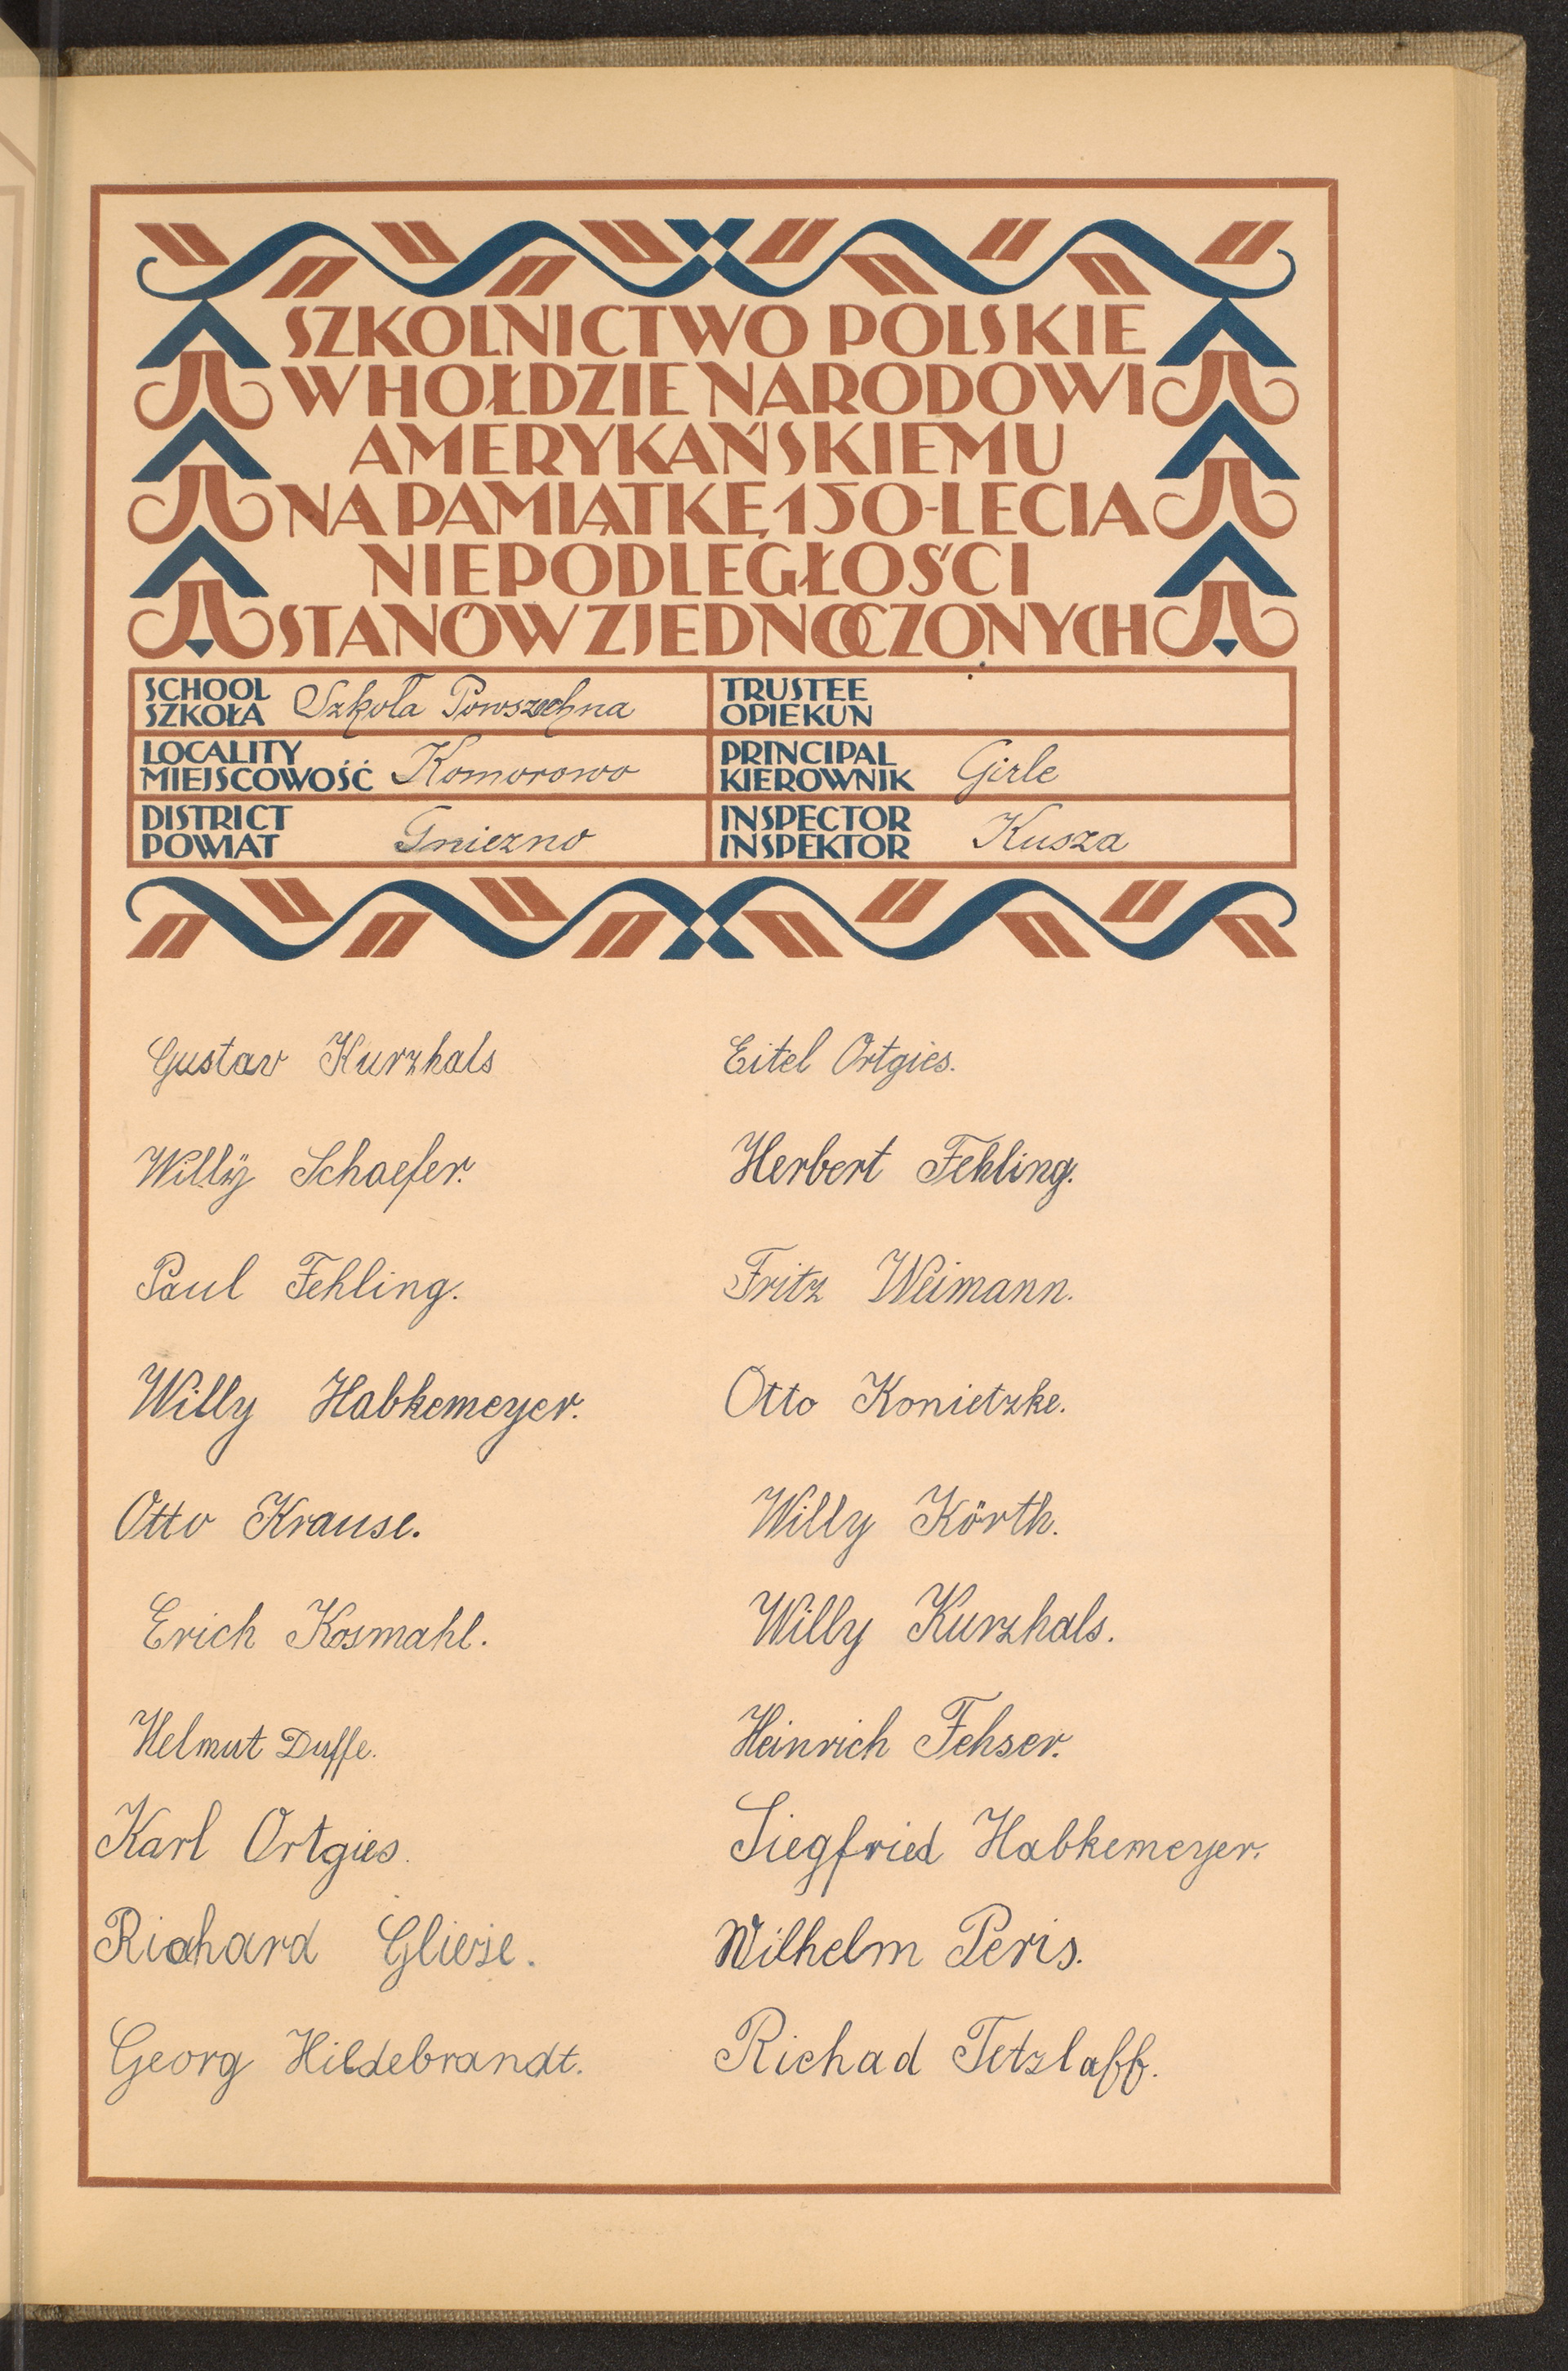 SZKOLNICTWO POLSKIE
W HOŁDZIE NARODOWI
AMERYKAŃSKIEMU
NA PAMIĄTKĘ 150-LECIA
NIEPODLEGŁOŚCI
STANÓW ZJEDNOCZONYCH
SCHOOL
SZKOŁA Szkoła Powszechna
TRUSTEE
OPIEKUN
LOCALITY
MIEJSCOWOŚĆ Komorowo
PRINCIPAL
KIEROWNIK Girle
DISTRICT
POWIAT Gniezno
INSPECTOR
INSPEKTOR Kusza
Gustav Kurzhals
Willÿ Schaefer.
Paul Fehling.
Willy Habkemeyer.
Otto Krause.
Erich Kosmahl.
Helmut Duffe.
Karl Ortgies.
Richard Gliese.
Georg Hildebrandt.
Eitel Ortgies.
Herbert Fehling.
Fritz Weimann.
Otto Konietzke.
Willy Körth.
Willy Kurzhals.
Heinrich Fehser.
Siegfried Habkemeyer.
Wilhelm Peris.
Richad Tetzlaff.